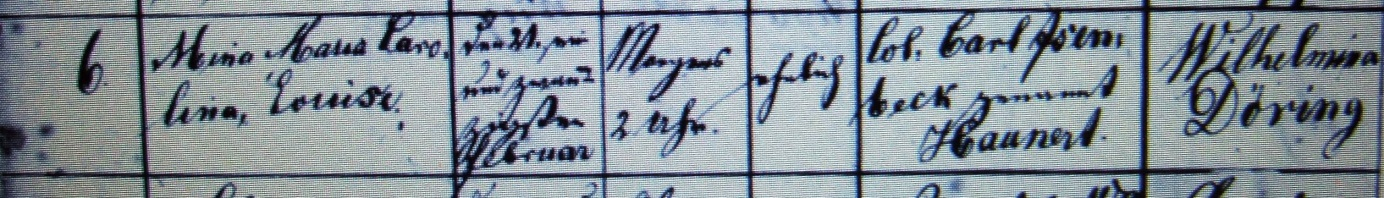 6.
Mina Maria Caro-
lina, Louise.
den 21. ein
und zwanz
zigsten
Februar
Morgens
2 Uhr.
ehelich
Col. Carl Isen-
beck genannt
Haunert.
Wilhelmina
Döring